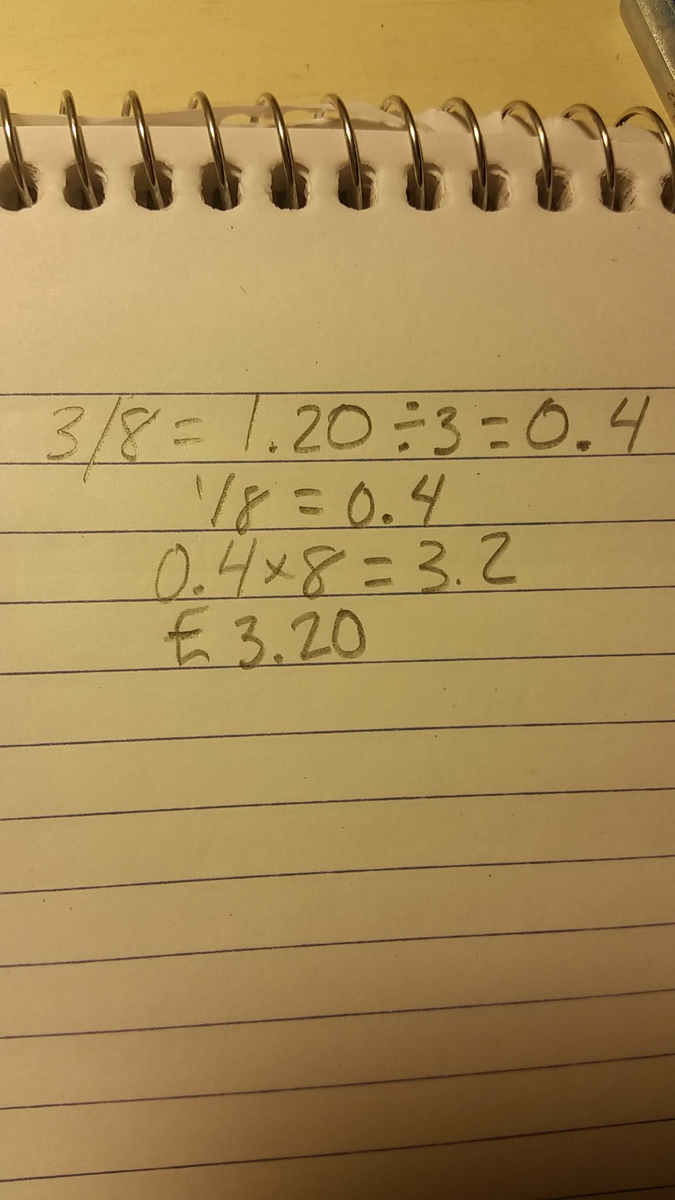 3/8 = 1.20 ÷ 3 = 0.4
1/8 = 0.4
0.4 × 8 = 3.2
£ 3.20